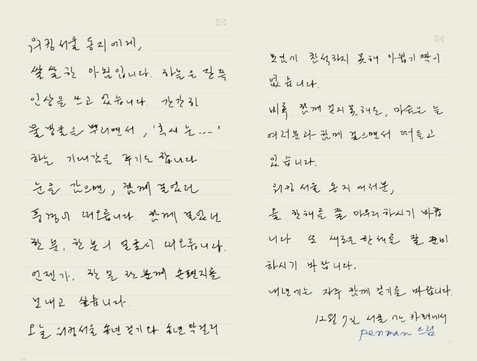 워킹서울 동지에게,
쌀쌀한 아침입니다. 하늘은 잔뜩
인상을 쓰고 있습니다. 간간히
물방울을 뿌리면서, '혹시 눈...'
하는 기대감을 주기도 합니다
눈을 감으면, 함께 걸었던
풍경이 떠오릅니다. 함께 걸었던
한분, 한분의 얼굴이 떠오릅니다.
언젠가, 한분 한분께 손편지를
보내고 싶습니다
오늘 워킹서울 송년 걷기와 송년 막걸리
모임에 참석하지 못해 아쉽기 짝이
없습니다.
비록 함께 걷지 못해도, 마음은 늘
여러분과 함께 걸으면서 떠들고
있습니다.
워킹 서울 동지 여러분,
올 한해를 잘 마무리하시기 바랍
니다 또 새로운 한해를 잘 준비
하시기 바랍니다.
내년에는 자주 함께 걷기를 바랍니다.
12월 7일 서울 카페에서
penman 드림